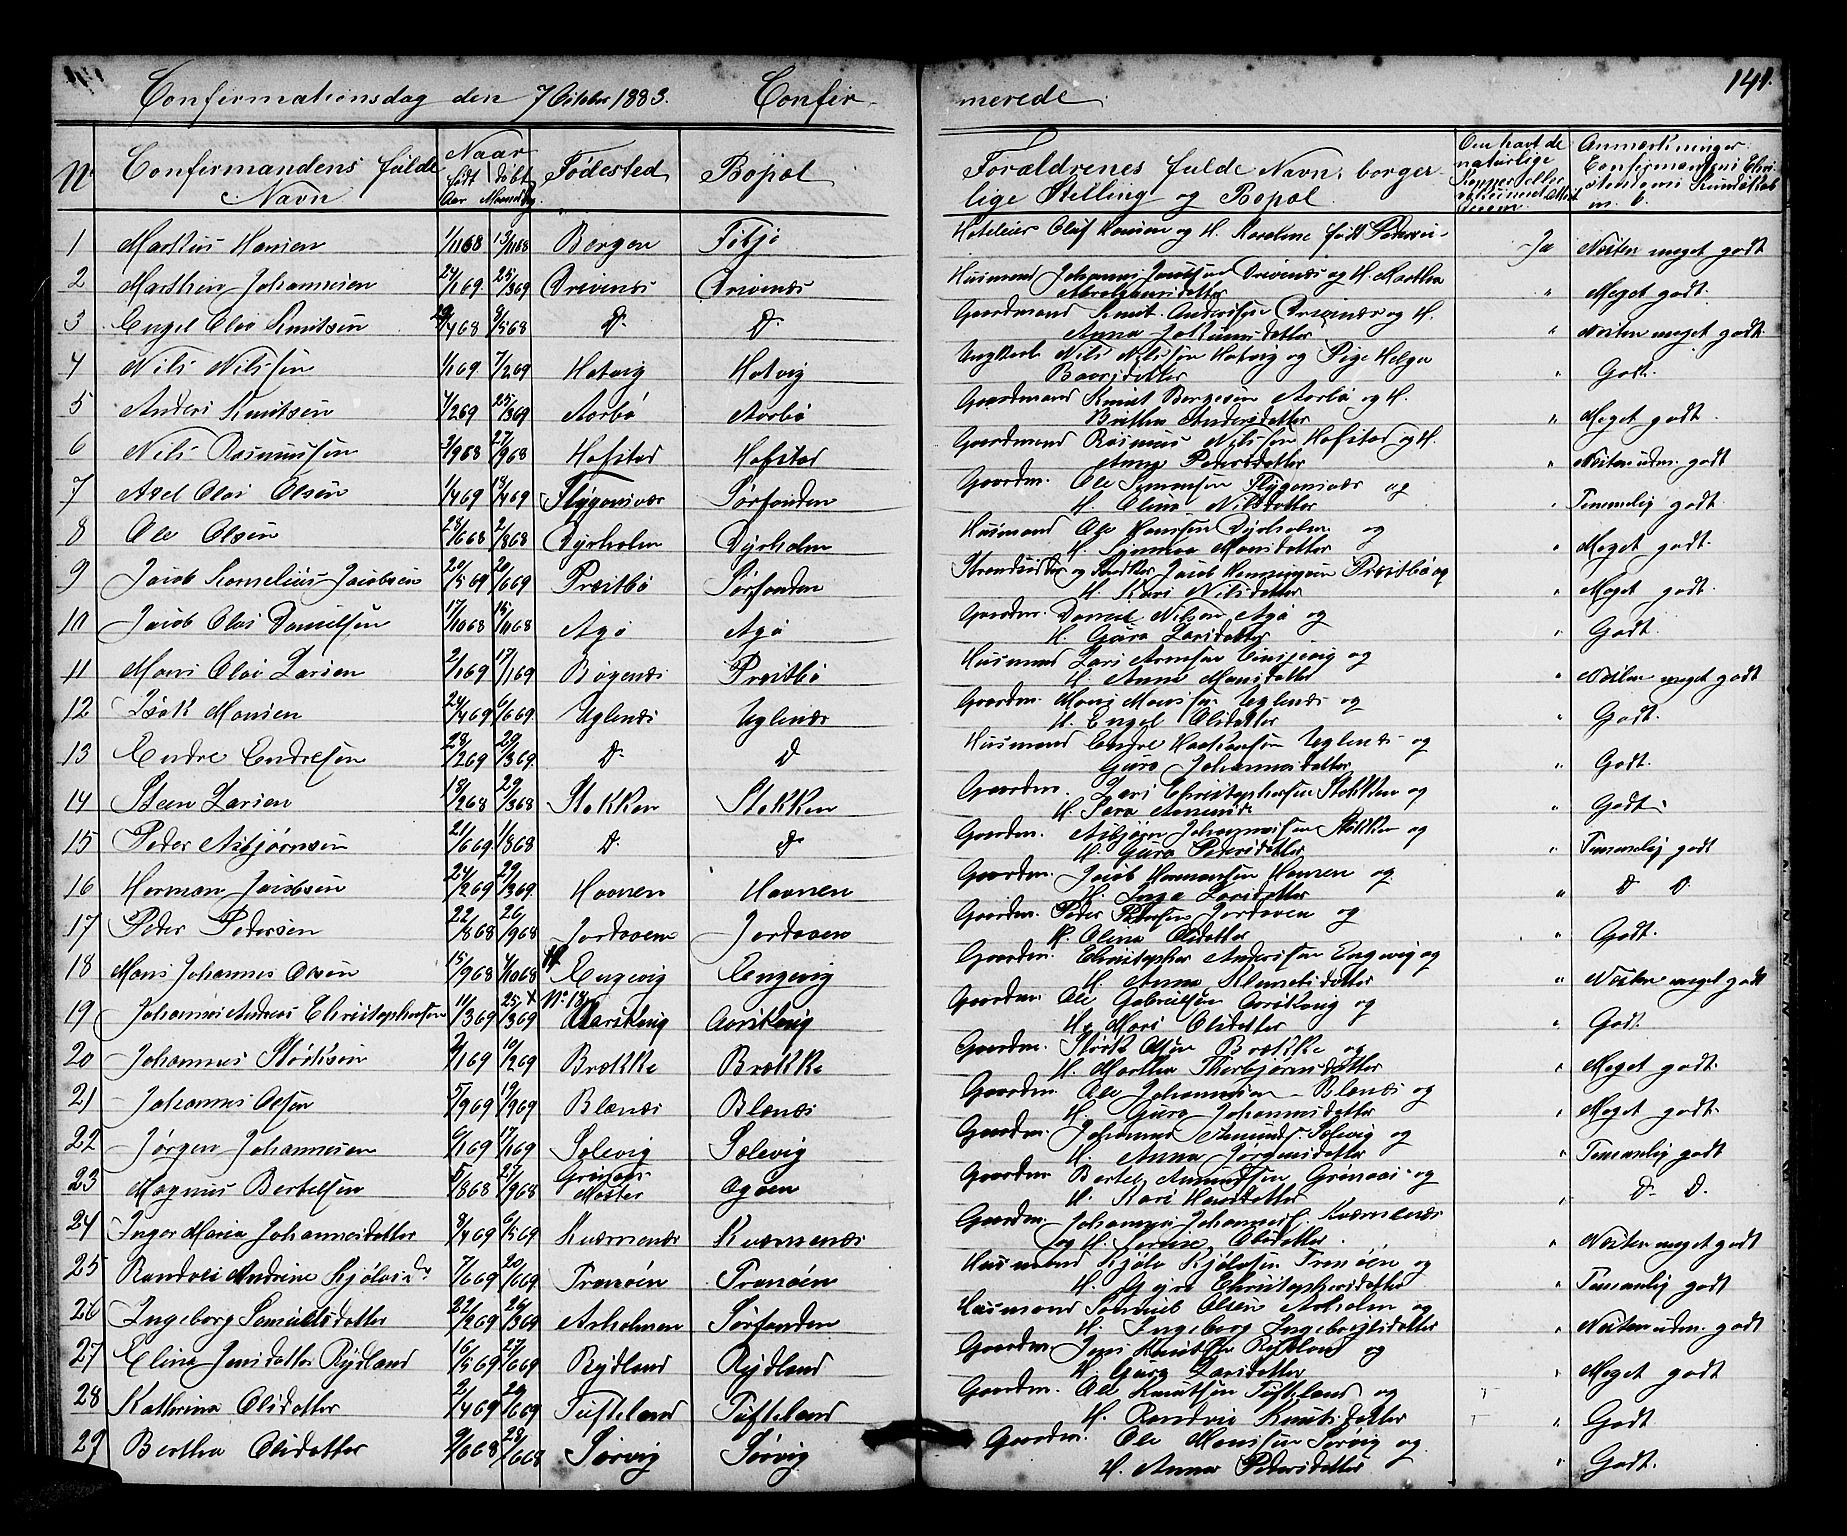 Confirmationsdag den 7 October 1883. Confir-
merede
141.
No Confirmandens fulde Navn
Naar født Aar
døbt Maaned Dag
Fødested
Bopæl
Forældrenes fulde Navn, borger-
lige Stilling og Bopæl.
Om havt de
naturlige
Kopper eller
Anmærkninger.
Confirmandens Chri-
stendoms Kundskab
m. v.
1 Markus Hansen 1/1168 13/1168 Bergen Fitjø Olaf Hansen og H. Karoline født Ja Næsten meget godt
2 Marthin Johannesen 24/169 25/369 Drivenæs Drivenæs Husmand Johannes Drivenæs og H. Martha " Meget godt.
3 Engel Olai Knutsen 29/468 8/568 Do Do Gaardmand Knut Andersen Drivenæs og H.
Anna " næsten meget godt.
4 Nils Nilssen 1/169 7/269 Hatvig Hatvig Ungkarl Nils Nilssen Hatvig og Pige Helga
Baarsdatter " Godt.
5 Anders Knutsen 4/269 25/369 Aarbø Aarbø Gaardmand Knut Børgesen Aarbø og H.
Brithe Andersdatter " Meget godt.
6 Nils Rasmussen 3/968 27/968 Hofstad Hofstad Gaardmand Rasmus Nilssen Hofstad og H.
Anna Pedersdatter " Næsten udm. godt
7 Axel Olai Olsen 1/469 18/469 Flygansvær Sørfonden Gaardm. Ole Simonsen Flygansvær og
H. Elina Nilsdatter " Temmelig godt
8 Ole Olsen 28/668 2/868 Dyrholm Dyrholm Husmand Ole Hansen Dyrholm og
H. Monsdatter " Meget godt.
9 Jacob Kornelius Jacobsen 20/569 20/669 Præstbø Sørfonden Strandsidder og Jacob Henningsen Præstbø og
H. Kari Nilsdatter " Meget godt.
10 Jacob Olai Danielsen 17/1068 15/1168 Agø Agø Gaardm. Daniel Nilsen Agø og
H. Gura Larsdatter " Godt.
11 Mons Olai Larsen 2/169 17/169 Bøgenæs Præstbø Husmand Lars Arnesen og
H. Anna Monsdatter " Næsten meget godt
12 Isak Monsen 24/469 6/669 Uglenæs Uglenæs Gaardm. Mons Monsen Uglenæs og
H. Engel Olsdatter " Godt.
13 Endre Endresen 28/269 29/369 Do Do Husmand Endre Haakonsen Uglenæs og
Gura Johannesdatter " Godt.
14 Steen Larsen 18/268 29/368 Stokken Stokken Gaardm. Lars Christophersen Stokken og
H. Sara " Godt.
15 Peder Asbjørnsen 21/669 1/868 Do Do Gaardm. Asbjørn Johannessen Stokken og
H. Gura Pedersdatter " Temmelig godt
16 Herman Jacobsen 24/269 29/369 Havnen Havnen Gaardm. Jacob Hermansen Havnen og
H. Inga Larsdatter " Do Do
17 Peder Pedersen 22/868 20/968 Jordaven Jordaven Gaardm. Peder Pedersen Jordaven og
H. Olina Olsdatter " Godt.
18 Mons Johannes Olsen 15/968 4/1068 Engevig Engevig Gaardm. Christopher Andersen Engevig og
H. Anna Klemetsdatter " Næsten meget godt
19 Johannes Andreas Christophersen 11/369 25/369 x No 18 Aarskvig Aarskvig Gaardm. Ole Gabrielsen Aarskvig og
H. Mari Olsdatter " Godt.
20 Johannes Størksen 2/169 10/269 Brække Brække Gaardm. Størk Olsen Brække og
H. Martha Thorbjørnsdatter " Meget godt.
21 Johannes Olsen 5/969 19/969 Blænæs Blænæs Gaardm. Ole Johannessen Blænæs og
H. Gura Johannesdatter " Meget godt.
22 Jørgen Johannesen 6/169 17/169 Solevig Solevig Gaardm. Johannes Amunds. Solevig og
H. Anna Jørgensdatter " Temmelig godt
23 Magnus Bertelsen 5/868 27/968 Moster Agøen Gaardm. Bertel Amundsen og
H. Kari Hansdatter " Do Do.
24 Inger Maria Johannesdatter 8/469 6/569 Kværnenæs Kværnenæs Gaardm. Johannes Johannes. Kværnenæs
og H. Olsdatter. " Næsten meget godt
25 Randvei Andrine Kjølvsdr 7/669 20/669 Transøen Transøen Husmand Kjølv Kjølvsen Transøen og
H. Christophersdatter " Temmelig godt
26 Ingeborg Samuelsdatter 22/269 26/369 Arholmen Sørfonden Husmand Samuel Olsen Arholm og
H. Ingeborg Ingebrigtsdatter " Næsten udm. godt
27 Elina Jensdatter Rydland 16/569 27/669 Rydland Rydland Gaardm. Jens Knutsen Rydland og
H. Gura Larsdatter " Meget godt
28 Kathrina Olsdatter 2/469 20/669 Tufteland Tufteland Gaardm. Ole Knutsen Tufteland og
H. Randvei Knutsdatter " Godt
29 Bertha Olsdatter 9/668 28/668 Sørvig Sørvig Gaardm. Ole Monsen Sørvig og
H. Anna Pedersdatter " Godt.